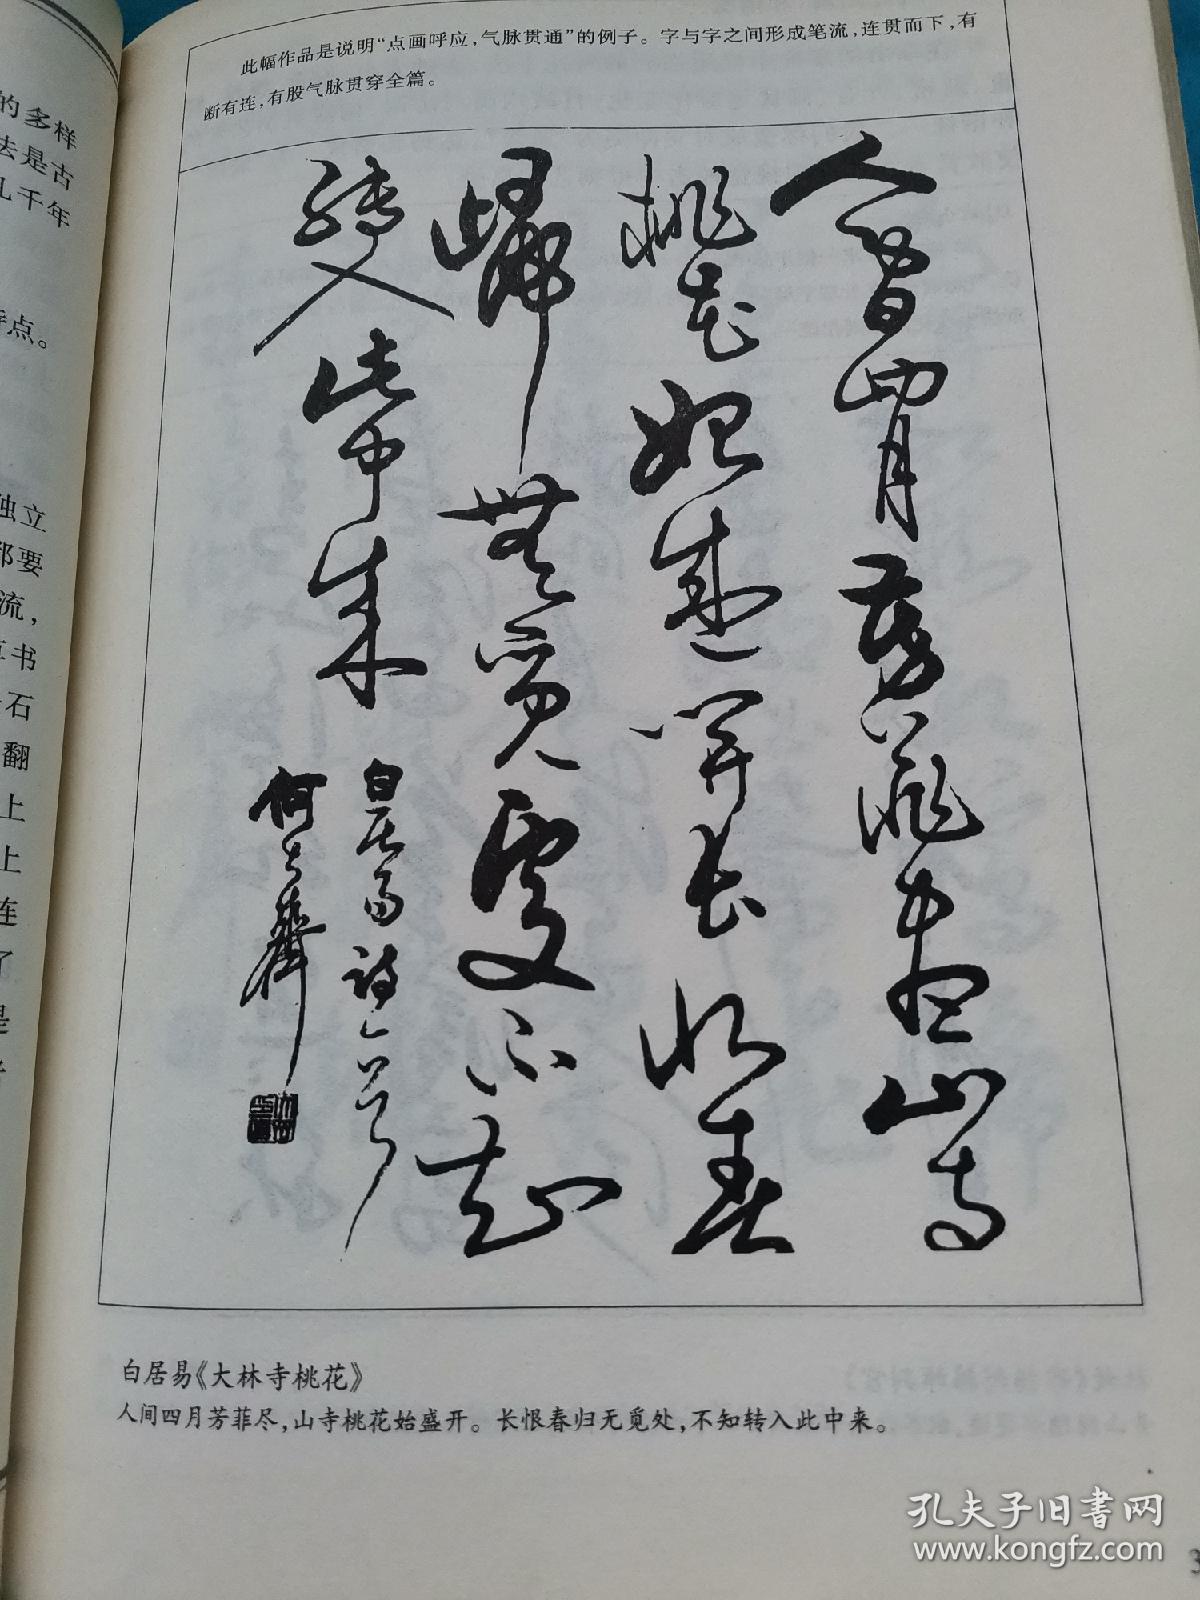 此幅作品是说明“点画呼应，气脉贯通”的例子。字与字之间形成笔流，连贯而下，有
断有连，有股气脉贯穿全篇。
人間四月芳菲盡山寺
桃花始盛開長恨春
歸無覓處不知
轉入此中來
白居易诗一首
何大齐
白居易《大林寺桃花》
人间四月芳菲尽，山寺桃花始盛开。长恨春归无觅处，不知转入此中来。
的多样
法是古
几千年
特点。
独立
都要
流，
草书
石
翻
上
上
连
了
是
孔夫子旧书网
www.kongfz.com
3